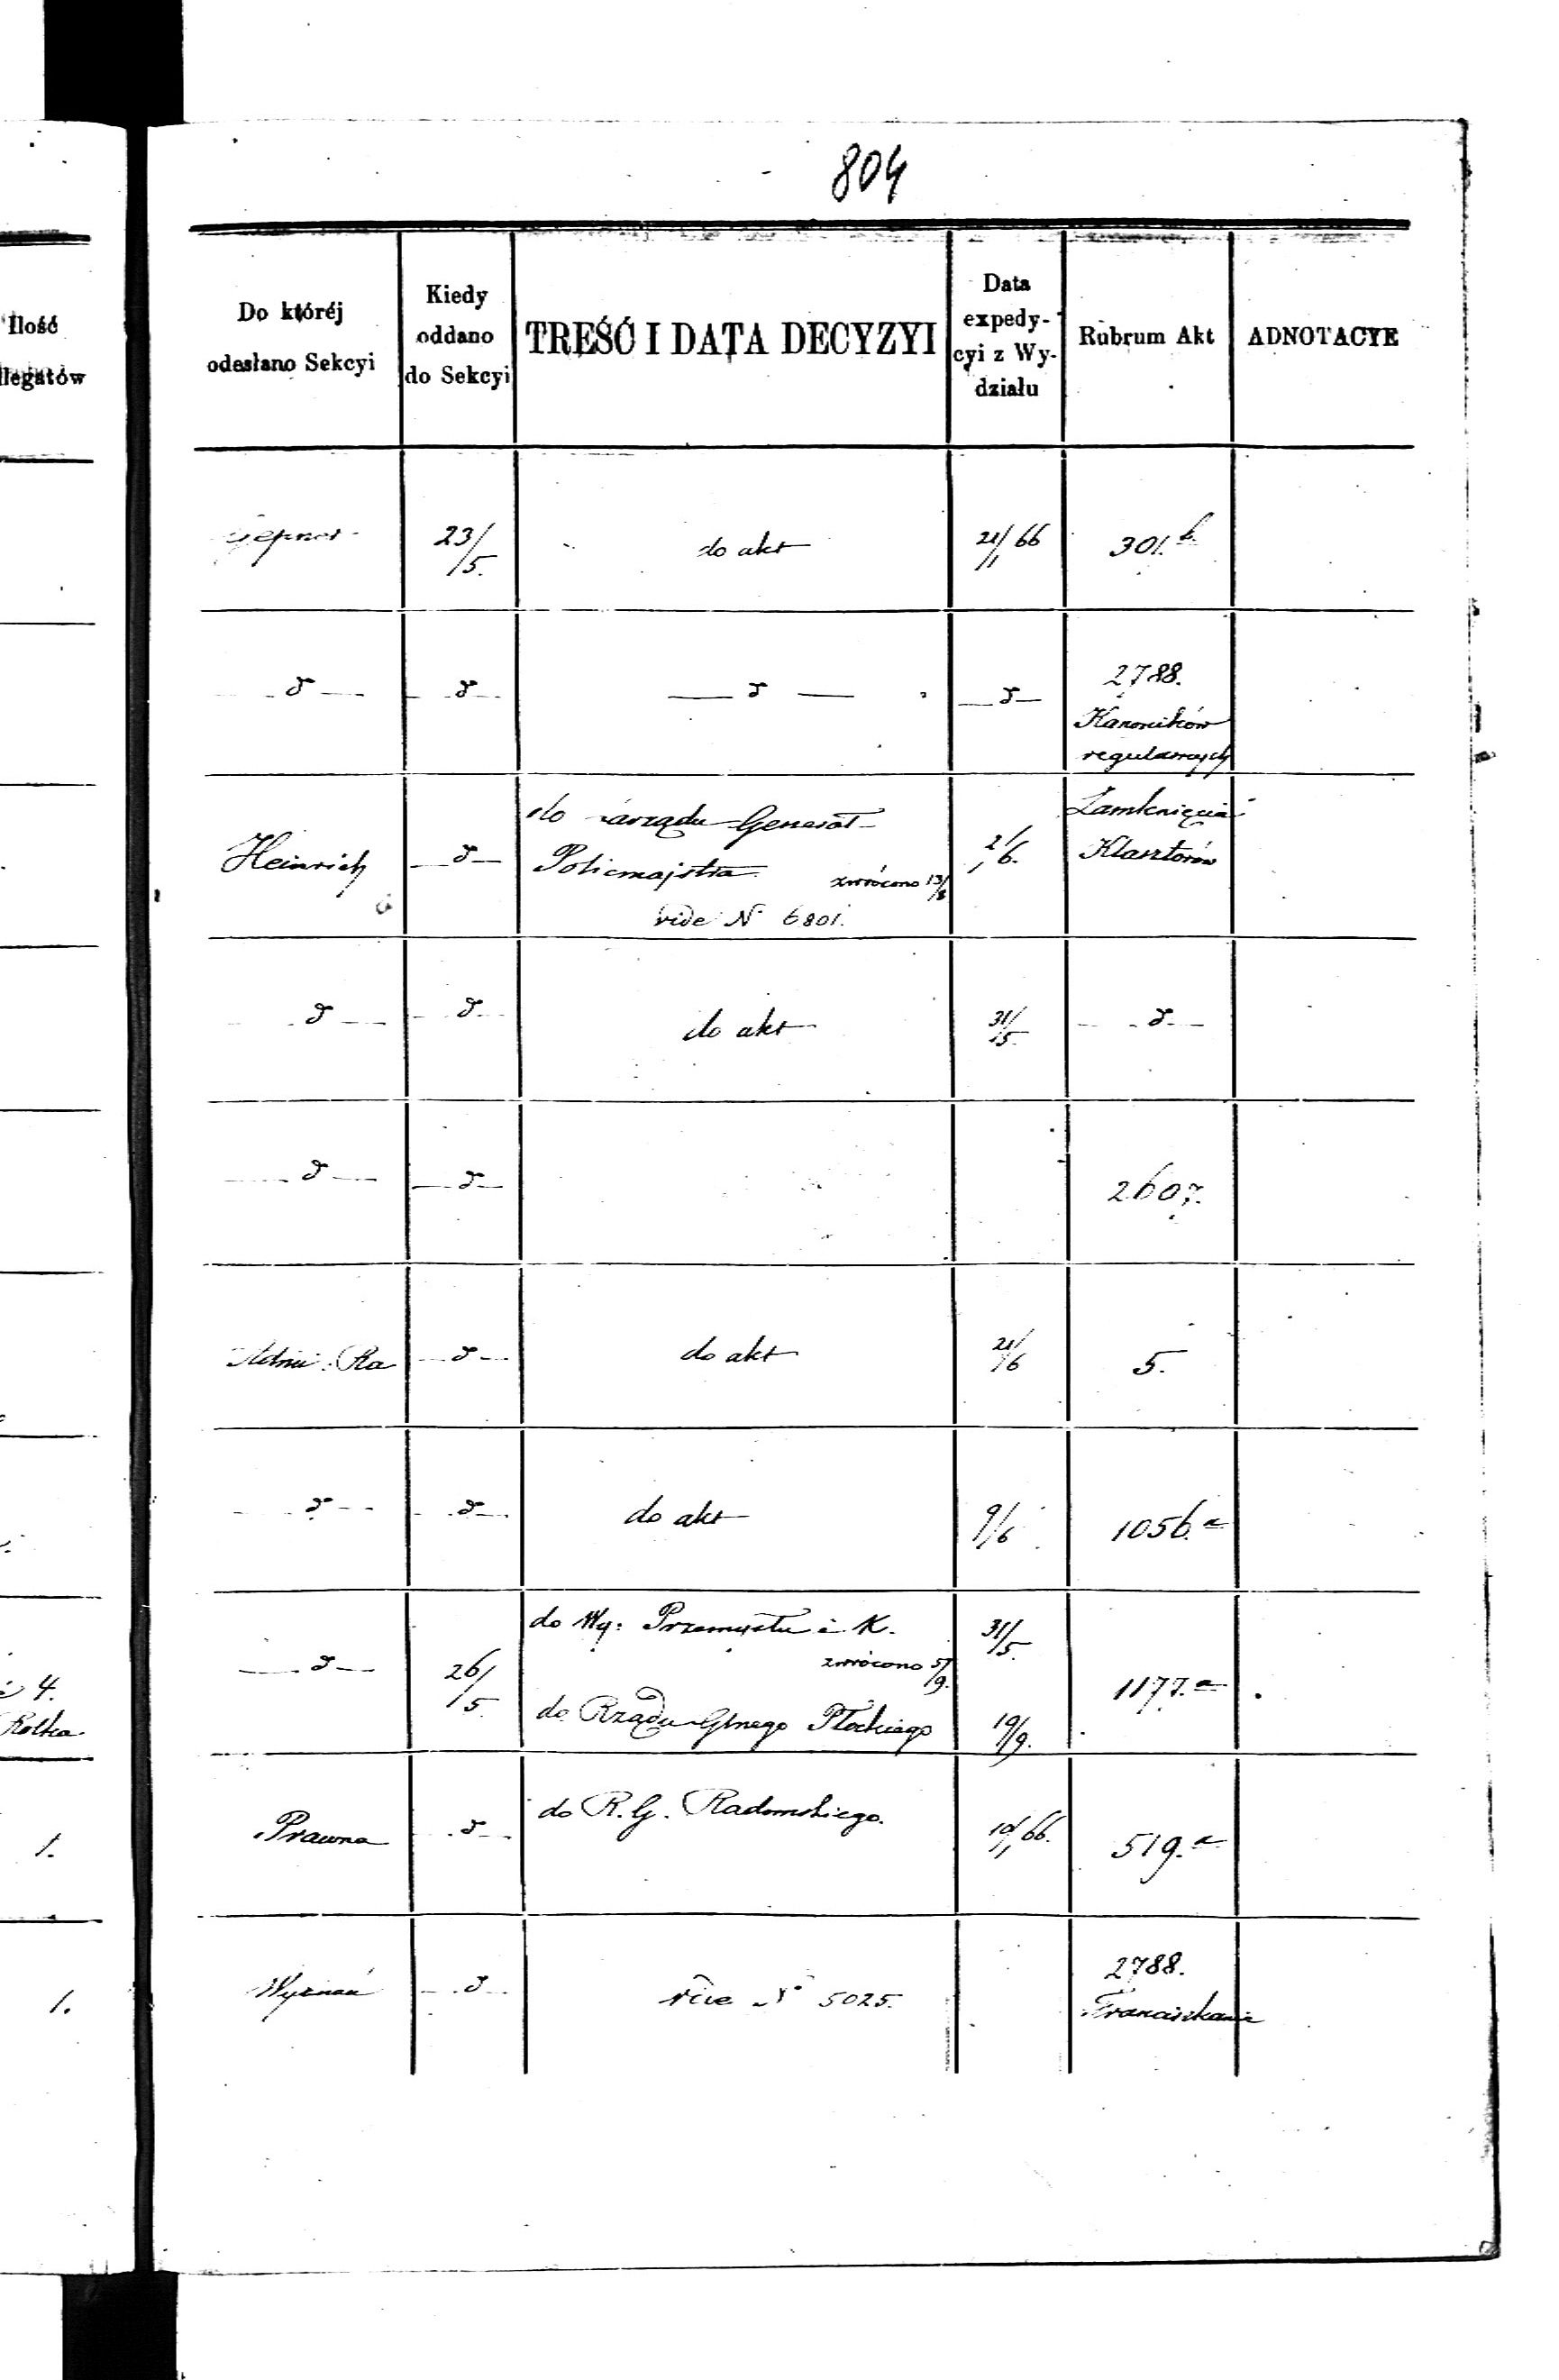 804
Ilość
llegatów
Do któréj
odesłano Sekcyi
Kiedy
oddano
do Sekcyi
TREŚĆ I DATA DECYZYI
Data
expedy-
cyi z Wy-
działu
Rubrum Akt
ADNOTACYE
23/5. do akt 21/1 66 301.b.
d d d d 2788.
Kanoników
regularnych
Heinrich d do Zarządu Generał-
Policmajstra zwrócono 13/8
vide N. 6801.
2/6. Zamknięcia
Klasztorów
d d do akt 31/5 d
d d 2607.
Admi: Ra d do akt 21/6 5.
d d do akt 9/6 1056.a
d 26/5 do Wy: Przemysłu i K. 31/5. 1177.a
zwrócono 5/9.
do Rządu Glnego Płockiego 19/9.
Prawna d do R. G. Radomskiego. 10/1 66. 519.a
Wyznań d vide N 5025. 2788.
Franciszkanie
4.
1.
1.